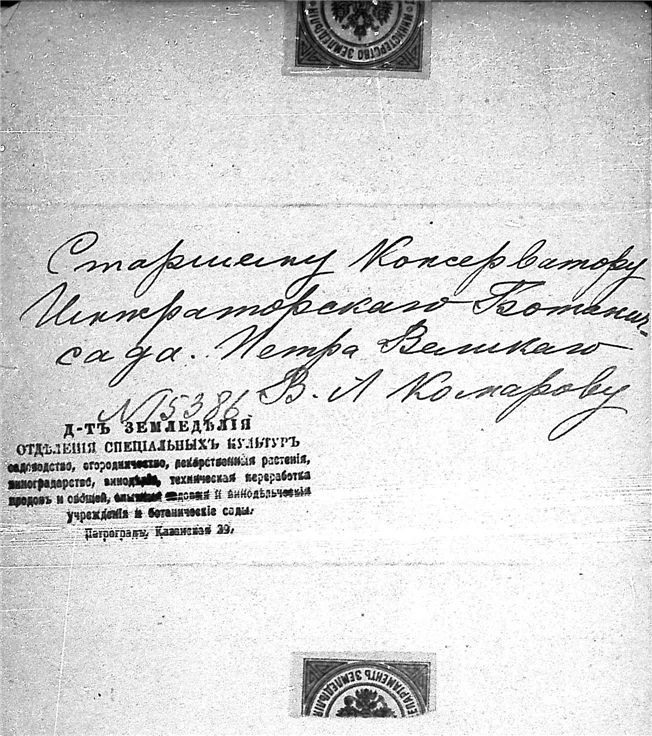 МИНИСТЕРСТВО ЗЕМЛЕДѢЛІЯ
Старшему Консерватору
Императорскаго Ботанич-
сада. Петра Великаго
В. Л Комарову
№ 15386
Д-ТЪ ЗЕМЛЕДѢЛІЯ
ОТДѢЛЕНІЯ СПЕЦІАЛЬНЫХЪ КУЛЬТУРЪ
садоводство, огородничество, лекарственныя растенія,
виноградарство, винодѣліе, техническая переработка
плодовъ и овощей, опытныя садовыя и винодѣльческія
учрежденія и ботаническіе сады.
Петроградъ, Казанская 29.
ДЕПАРТАМЕНТЪ ЗЕМЛЕДѢЛІЯ